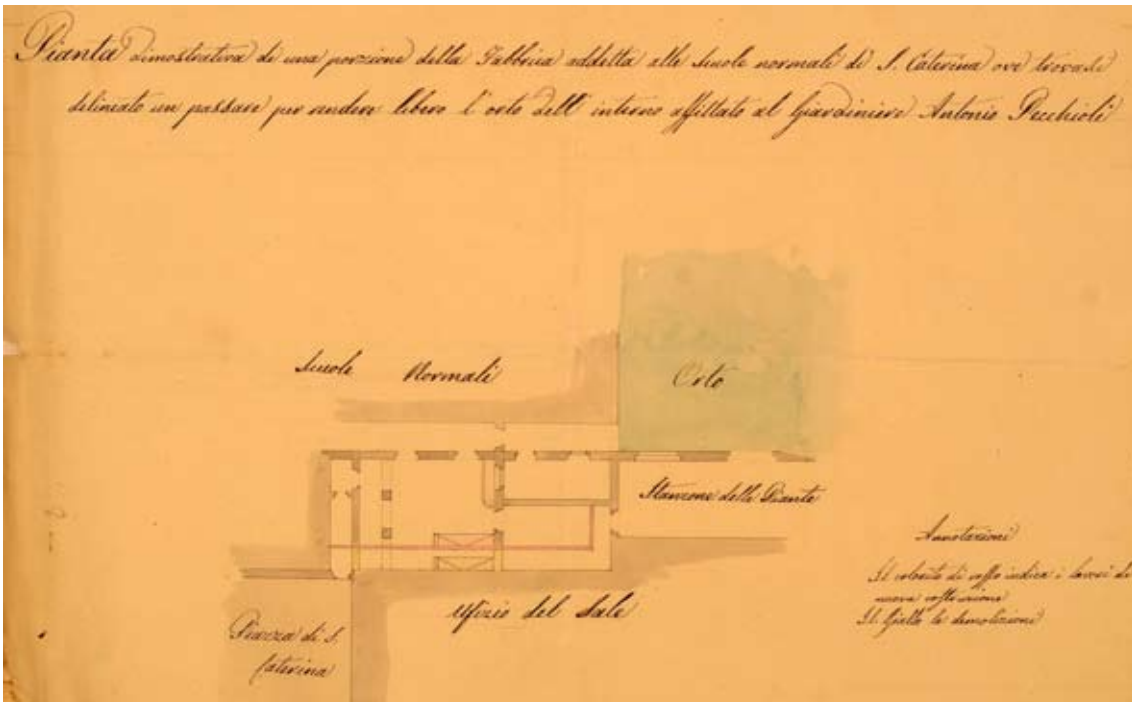 Pianta dimostrativa di una porzione della Fabbrica addetta alle Scuole normali di S. Caterina ove trovasi
delineato un passare per rendere libero l'orto dell'interno affittato al Giardiniere Antonio Pecchioli
Scuole Normali
Orto
Stanzone delle Piante
Annotazioni
Il colorito di rosso indica i lavori di
nuova costruzione
Il Giallo le demolizioni
Ufizio del Sale
Piazza di S.
Caterina